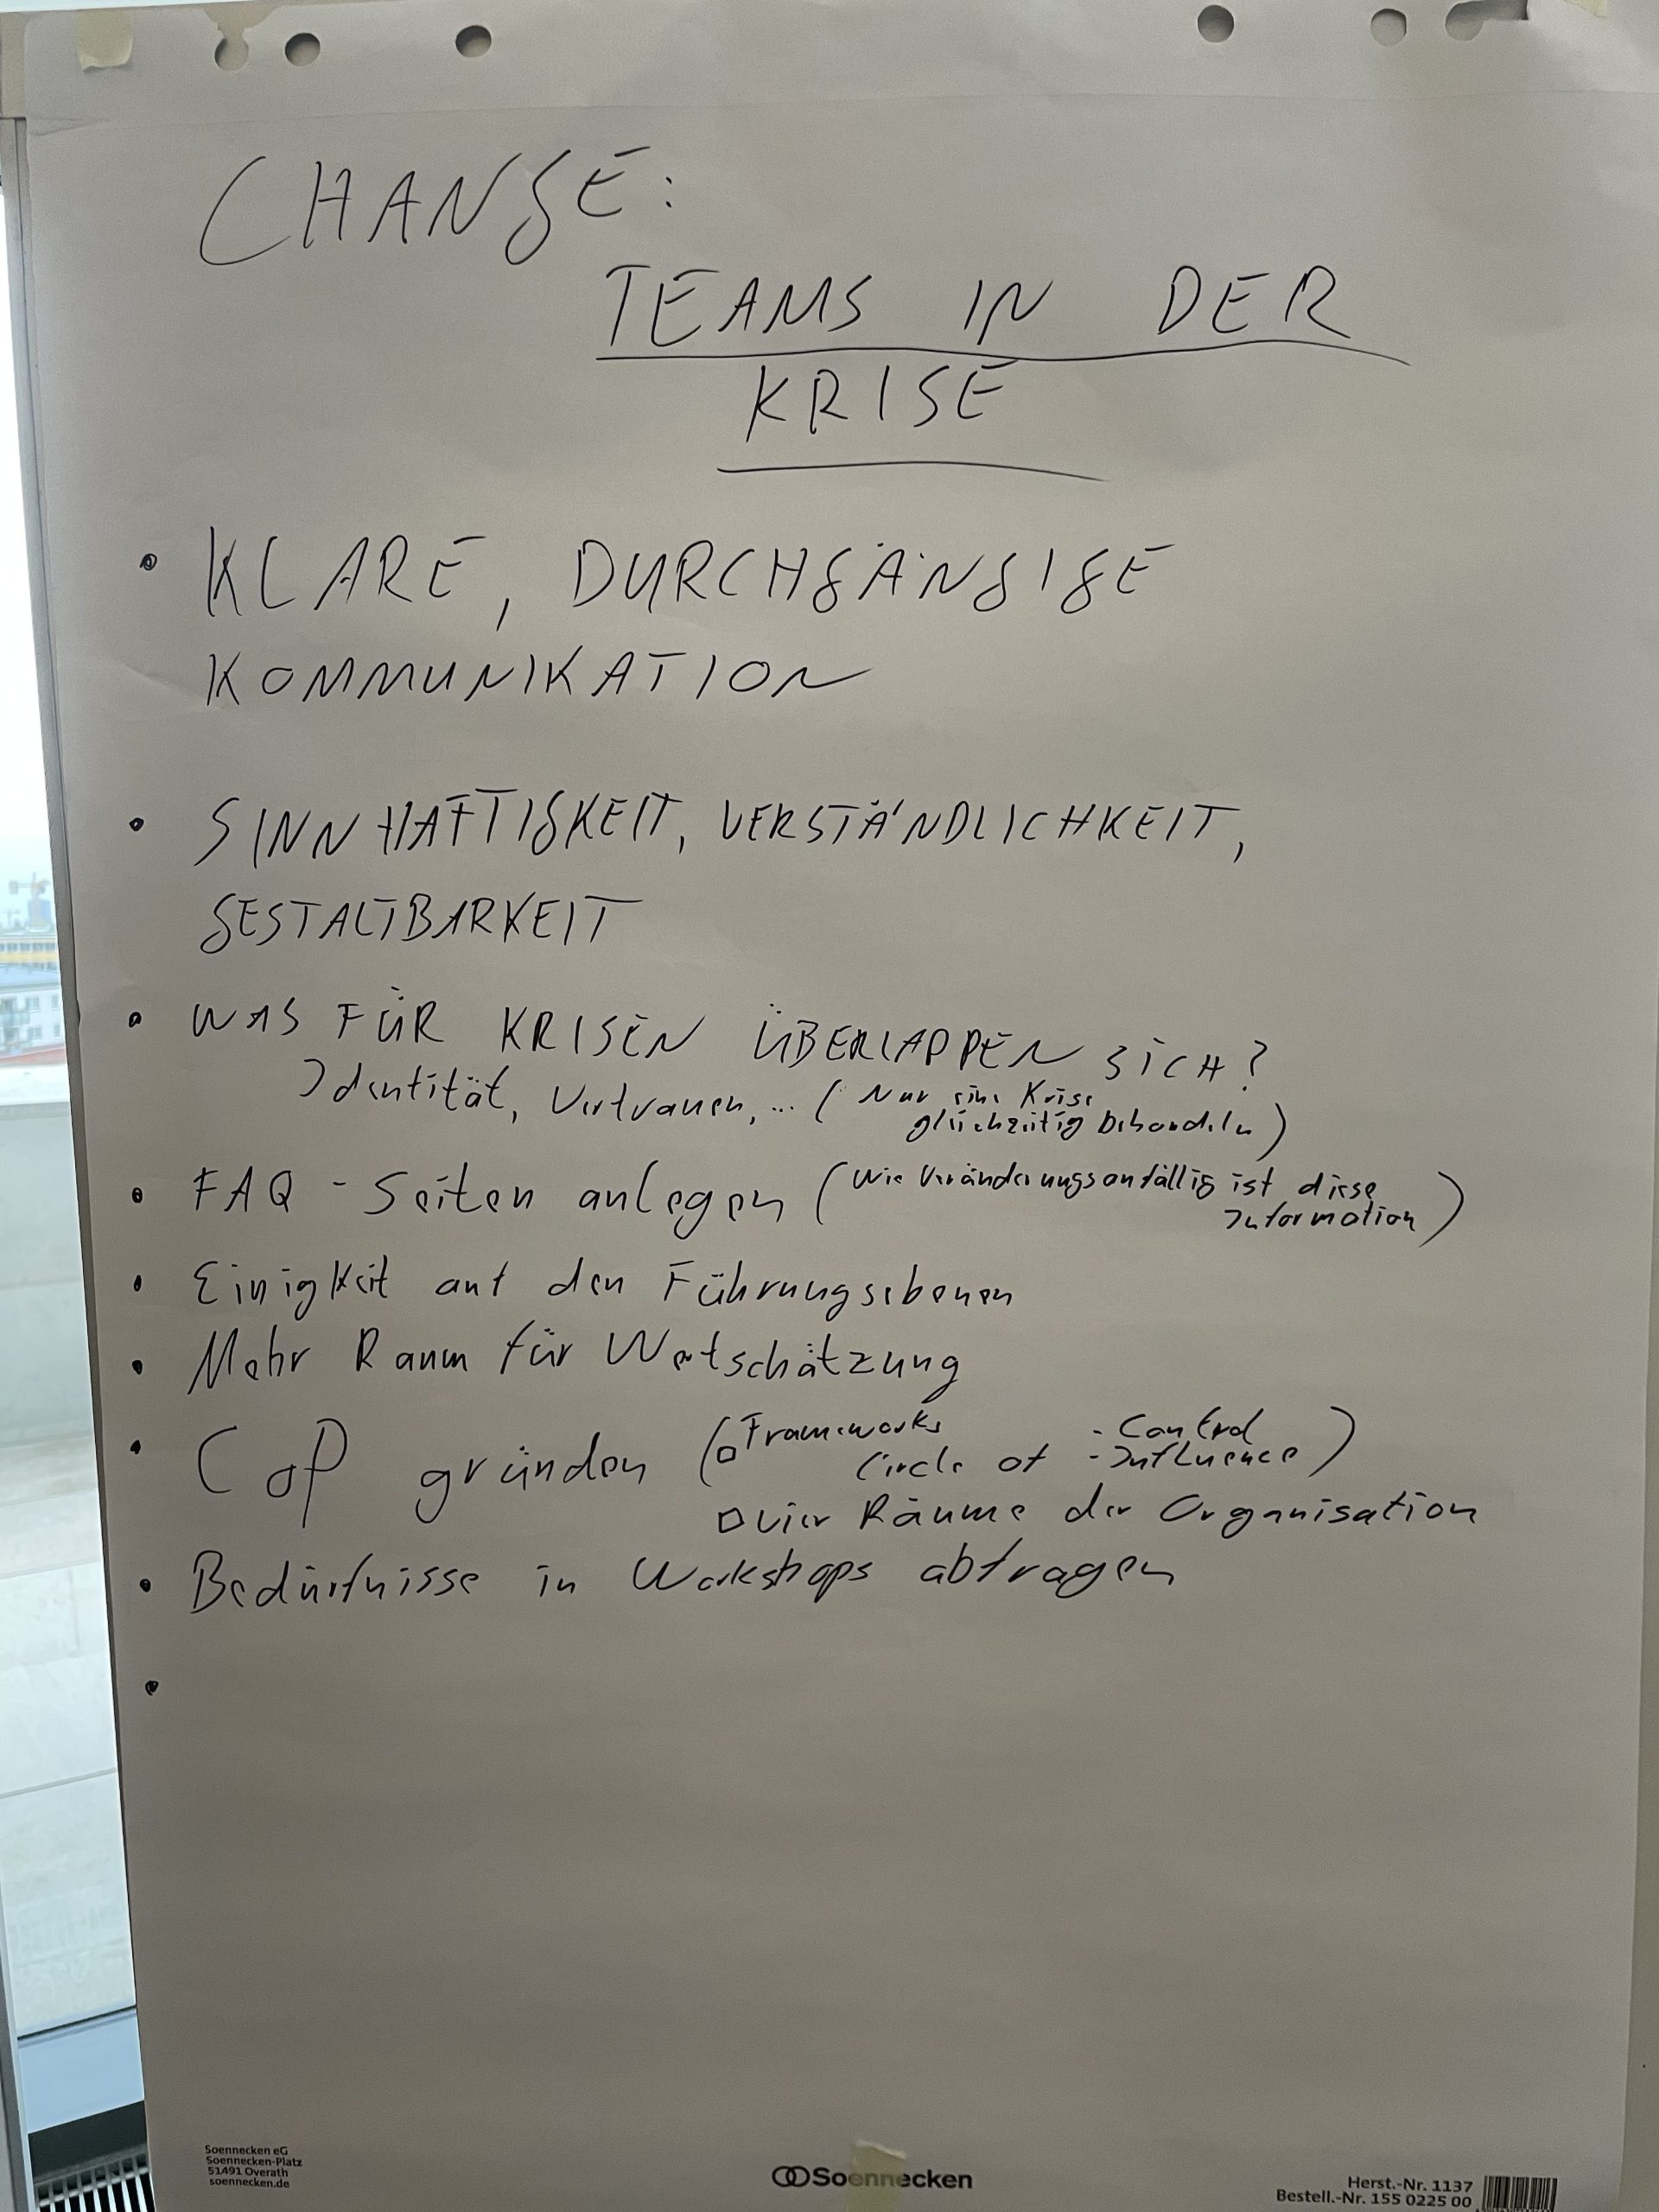 CHANGE:
TEAMS IN DER
KRISE
• KLARE, DURCHGÄNGIGE
KOMMUNIKATION
• SINNHAFTIGKEIT, VERSTÄNDLICHKEIT,
GESTALTBARKEIT
• WAS FÜR KRISEN ÜBERLAPPEN SICH?
Identität, Vertrauen, ... (Nur eine Krise
gleichzeitig behandeln)
• FAQ - Seiten anlegen (Wie Veränderungsanfällig ist diese
Information)
• Einigkeit auf den Führungsebenen
• Mehr Raum für Wertschätzung
• CoP gründen (□ Frameworks
Circle of - Control
- Influence)
□ Vier Räume der Organisation
• Bedürfnisse in Workshops abfragen
•
Soennecken eG
Soennecken-Platz
51491 Overath
soennecken.de
Soennecken
Herst.-Nr. 1137
Bestell.-Nr. 155 0225 00